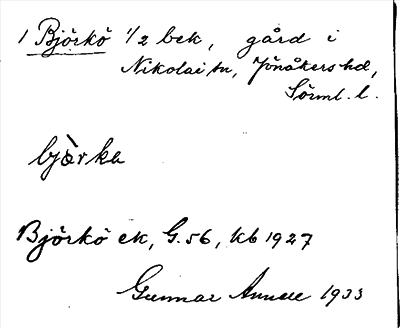 1 Björkö 1/2 bek, gård i
Nikolai sn, Jönåkers hd,
Sörml. l.
bjærka
Björkö ek, G. 56, kb 1927
Gunnar 1933